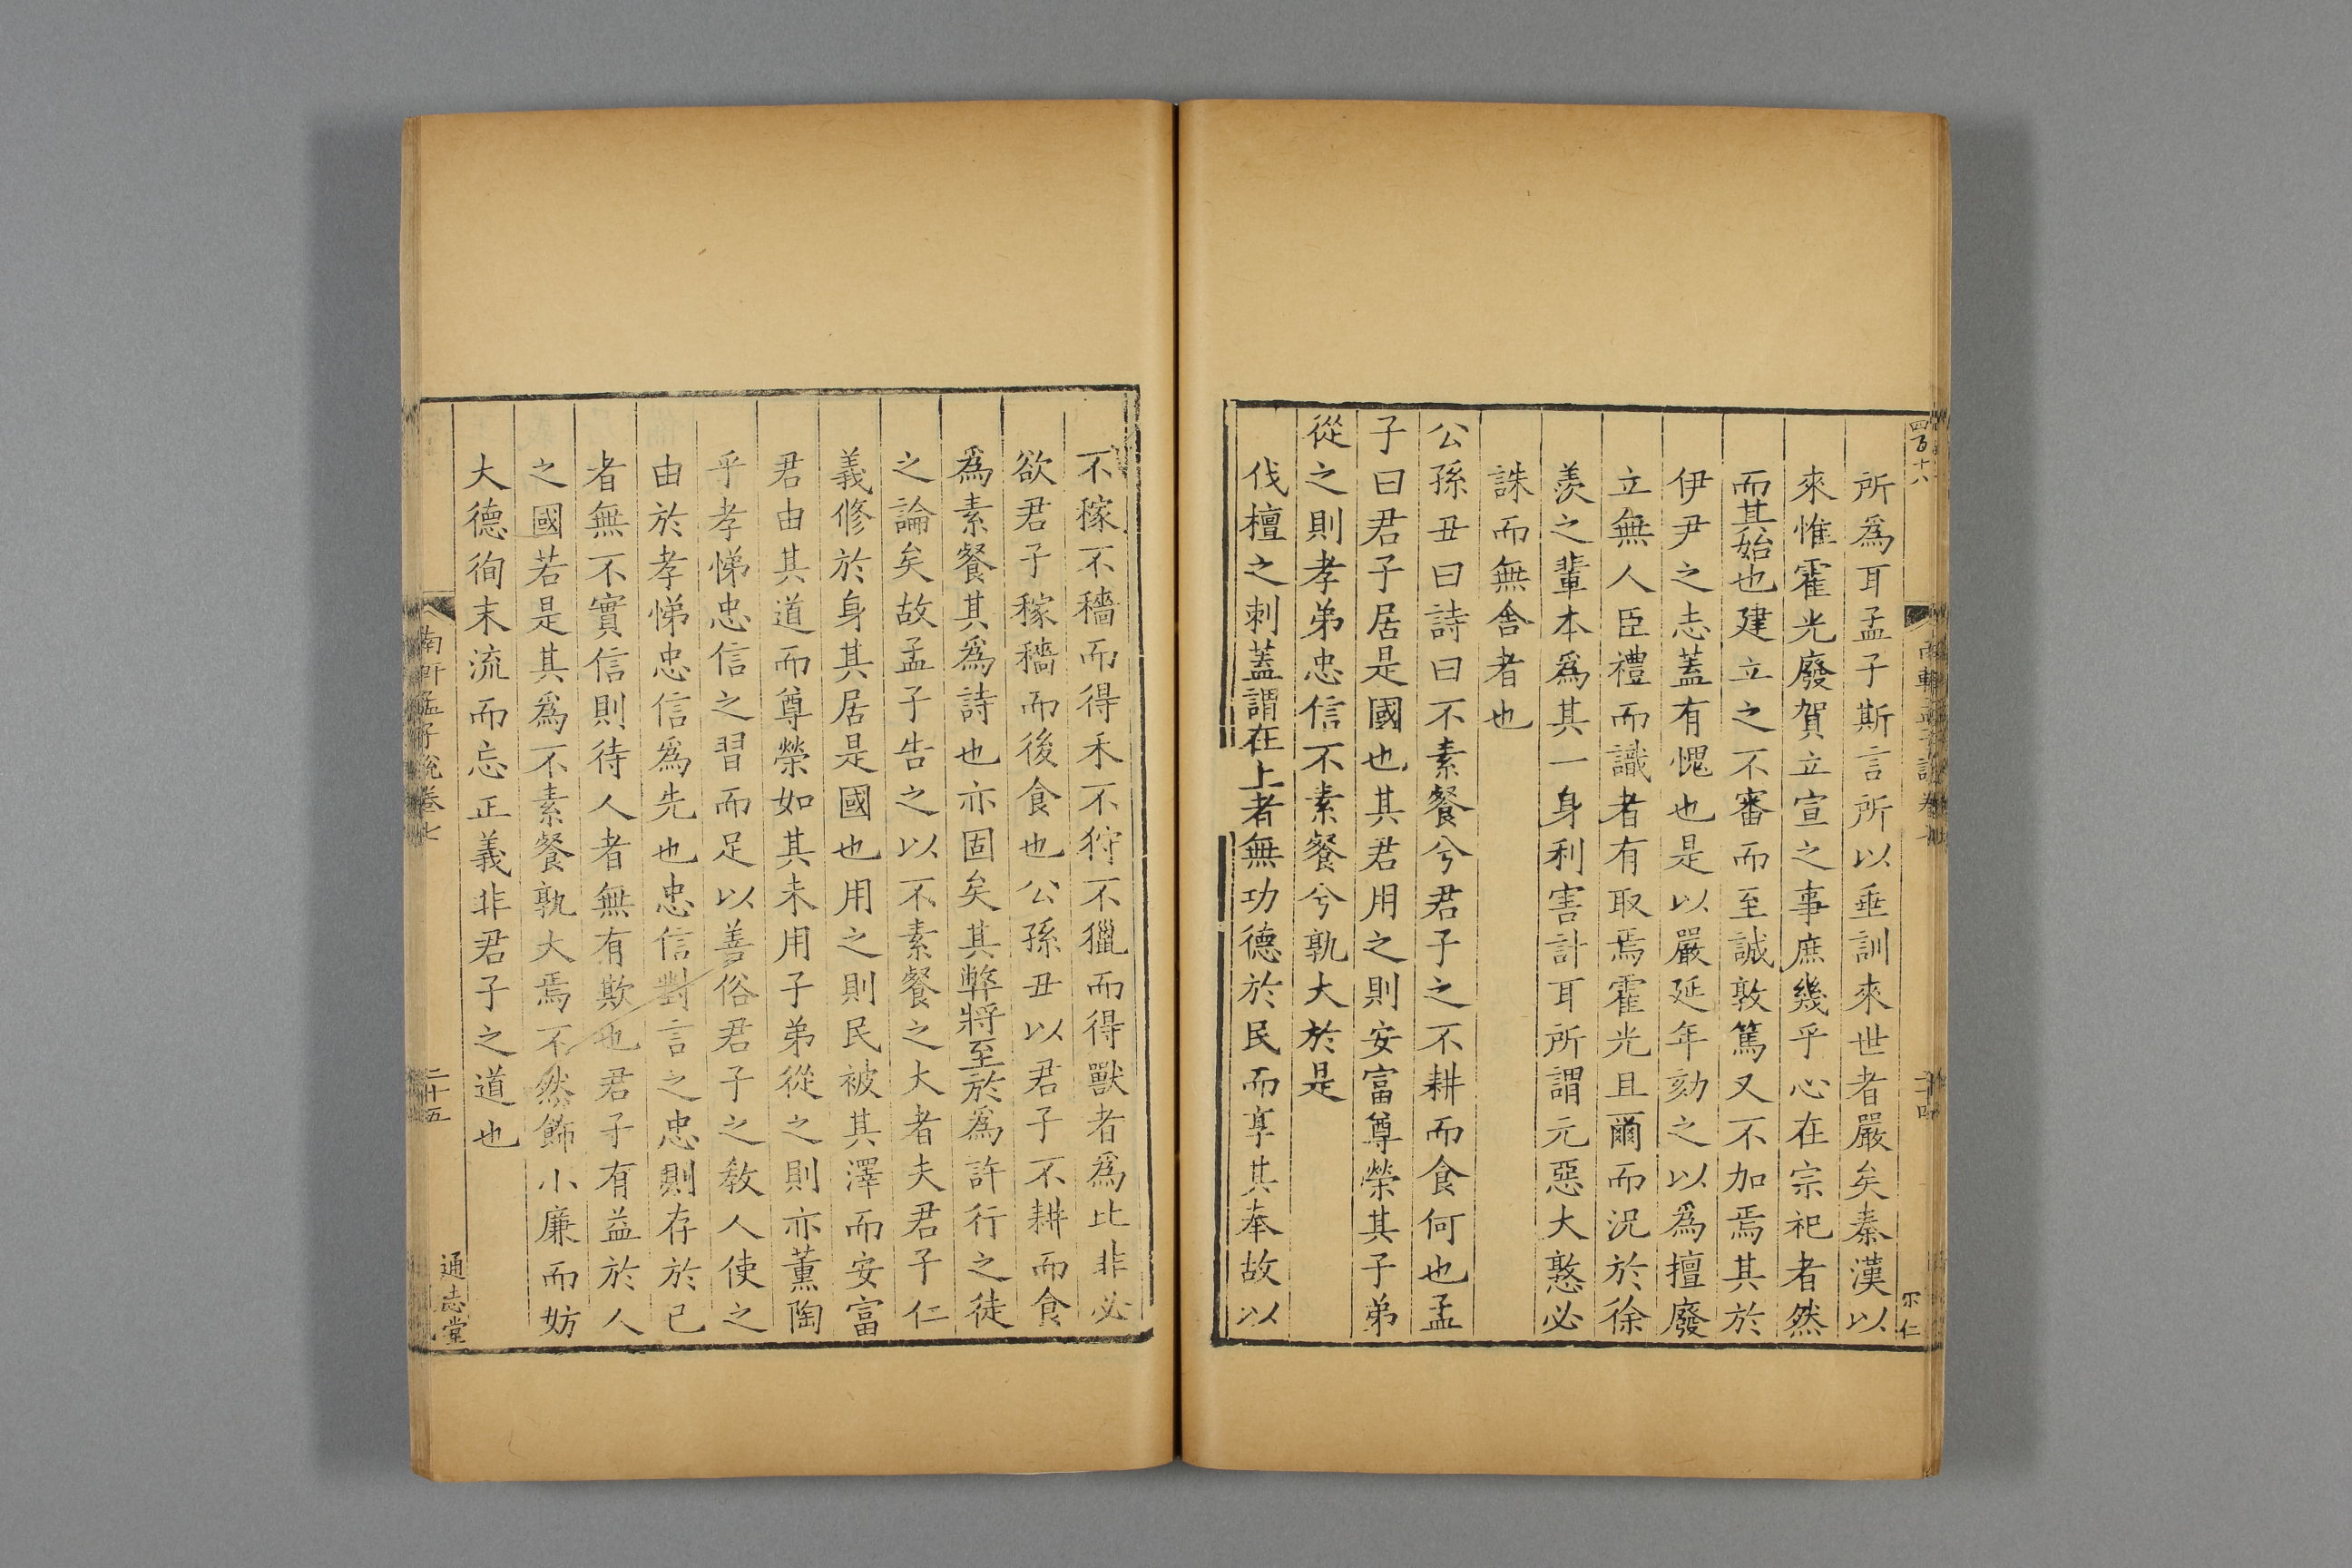 四百十八
南軒孟子說卷七
二十四
尔仁
所爲耳孟子斯言所以垂訓來世者嚴矣秦漢以
來惟霍光廢賀立宣之事庶幾乎心在宗祀者然
而其始也建立之不審而至誠敦篤又不加焉其於
伊尹之志蓋有愧也是以嚴延年劾之以爲擅廢
立無人臣禮而識者有取焉霍光且爾而況於徐
羡之輩本爲其一身利害計耳所謂元惡大憝必
誅而無舍者也
公孫丑曰詩曰不素餐兮君子之不耕而食何也孟
子曰君子居是國也其君用之則安富尊榮其子弟
從之則孝弟忠信不素餐兮孰大於是
伐檀之刺蓋謂在上者無功德於民而享其奉故以
不稼不穡而得禾不狩不獵而得獸者爲比非必
欲君子稼穡而後食也公孫丑以君子不耕而食
爲素餐其爲詩也亦固矣其弊將至於為許行之徒
之論矣故孟子告之以不素餐之大者夫君子仁
義修於身其居是國也用之則民被其澤而安富
君由其道而尊榮如其未用子弟從之則亦薰陶
乎孝悌忠信之習而足以善俗君子之教人使之
由於孝悌忠信爲先也忠信對言之忠則存於已
者無不實信則待人者無有欺也君子有益於人
之國若是其爲不素餐孰大焉不然飾小廉而妨
大德徇末流而忘正義非君子之道也
南軒孟子說卷七
二十五
通志堂